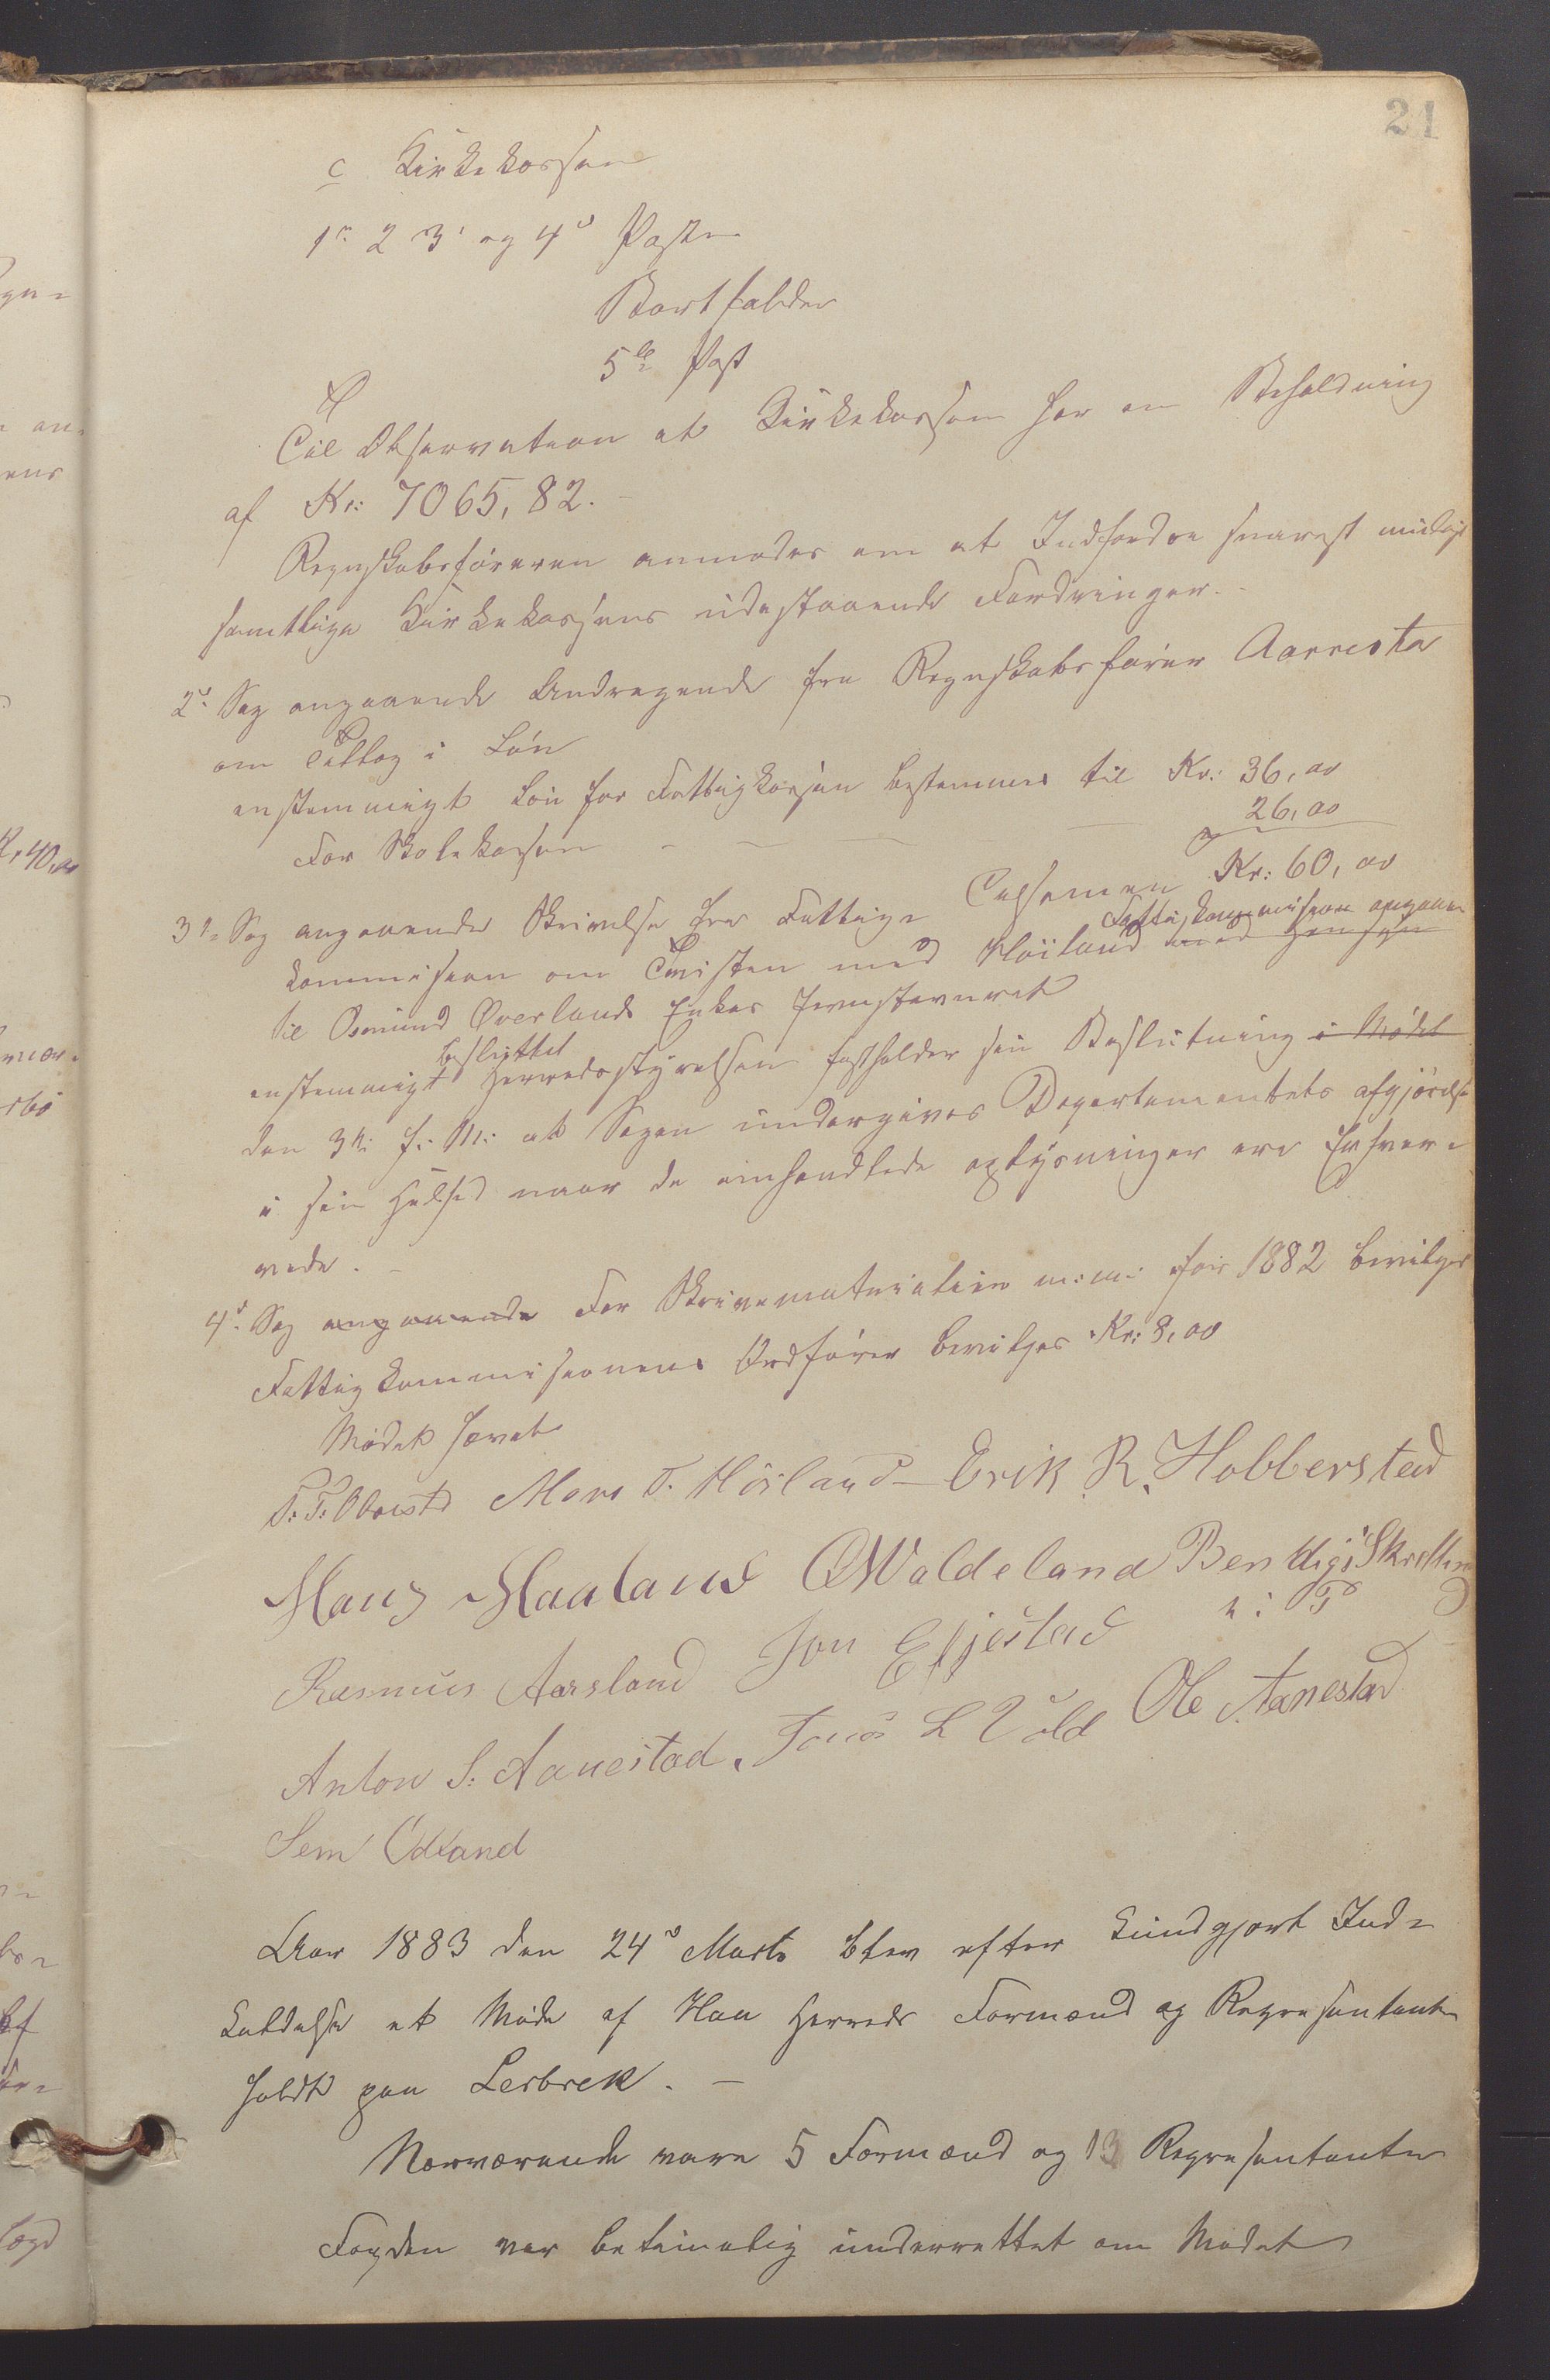 21
c Kirkekassen
1ste 2 3 og 4de Poster
Bortfalder
5te Post
Til Observation at Kirkekassen har en Beholdning
af Kr: 7065,82. -
Regnskabsføreren anmodes om at Indfordre snarest muligt
samtlige Kirkekassens udestaaende Fordringer. -
2de Sag angaaende Andragende fra Regnskabsfører Aarrestad
om Tillæg i Løn
enstemmigt Løn for Fattigkassen bestemmes til Kr: 36,00
For Skolekassen - - - - 26,00
Tilsamen Kr: 60,00
3die Sag angaaende Skrivelse fra Fattig=
Fattigkommision angaaen
kommision om Tvisten med Høiland med Hensyn
til Osmund Overlands Enkes Hjemstavnsret
besluttet
enstemmigt Herredsstyrelsen fastholder sin Beslutning i Mødet
den 3die f: M: at Sagen undergives Departementets afgjørelse
i sin Helhed naar de omhandlede oplysninger ere Erhver=
vede. -
4de Sag angaaende For Skrivematerialier m:m: for 1882 bevilges
Fattigkommisionens Ordfører bevilges Kr: 8,00
Mødet hævet
Mons T. Höiland - Erik R. Hobberstad
Maus Haaland OWaldeland Bendigt Skretting
Rasmus Aarsland Jon Efjestad m: P
Anton S. Aanestad. Tonis L Vold Ole Aanestad
Sem Ödland
Aar 1883 den 24de Marts blev efter kundgjort Ind=
kaldelse et Møde af Haa Herreds Formænd og Repræsentanter
holdt paa Lerbrek. -
Nærværende vare 5 Formænd og 13 Repræsentanter
Fogden var betimelig underrettet om Mødet